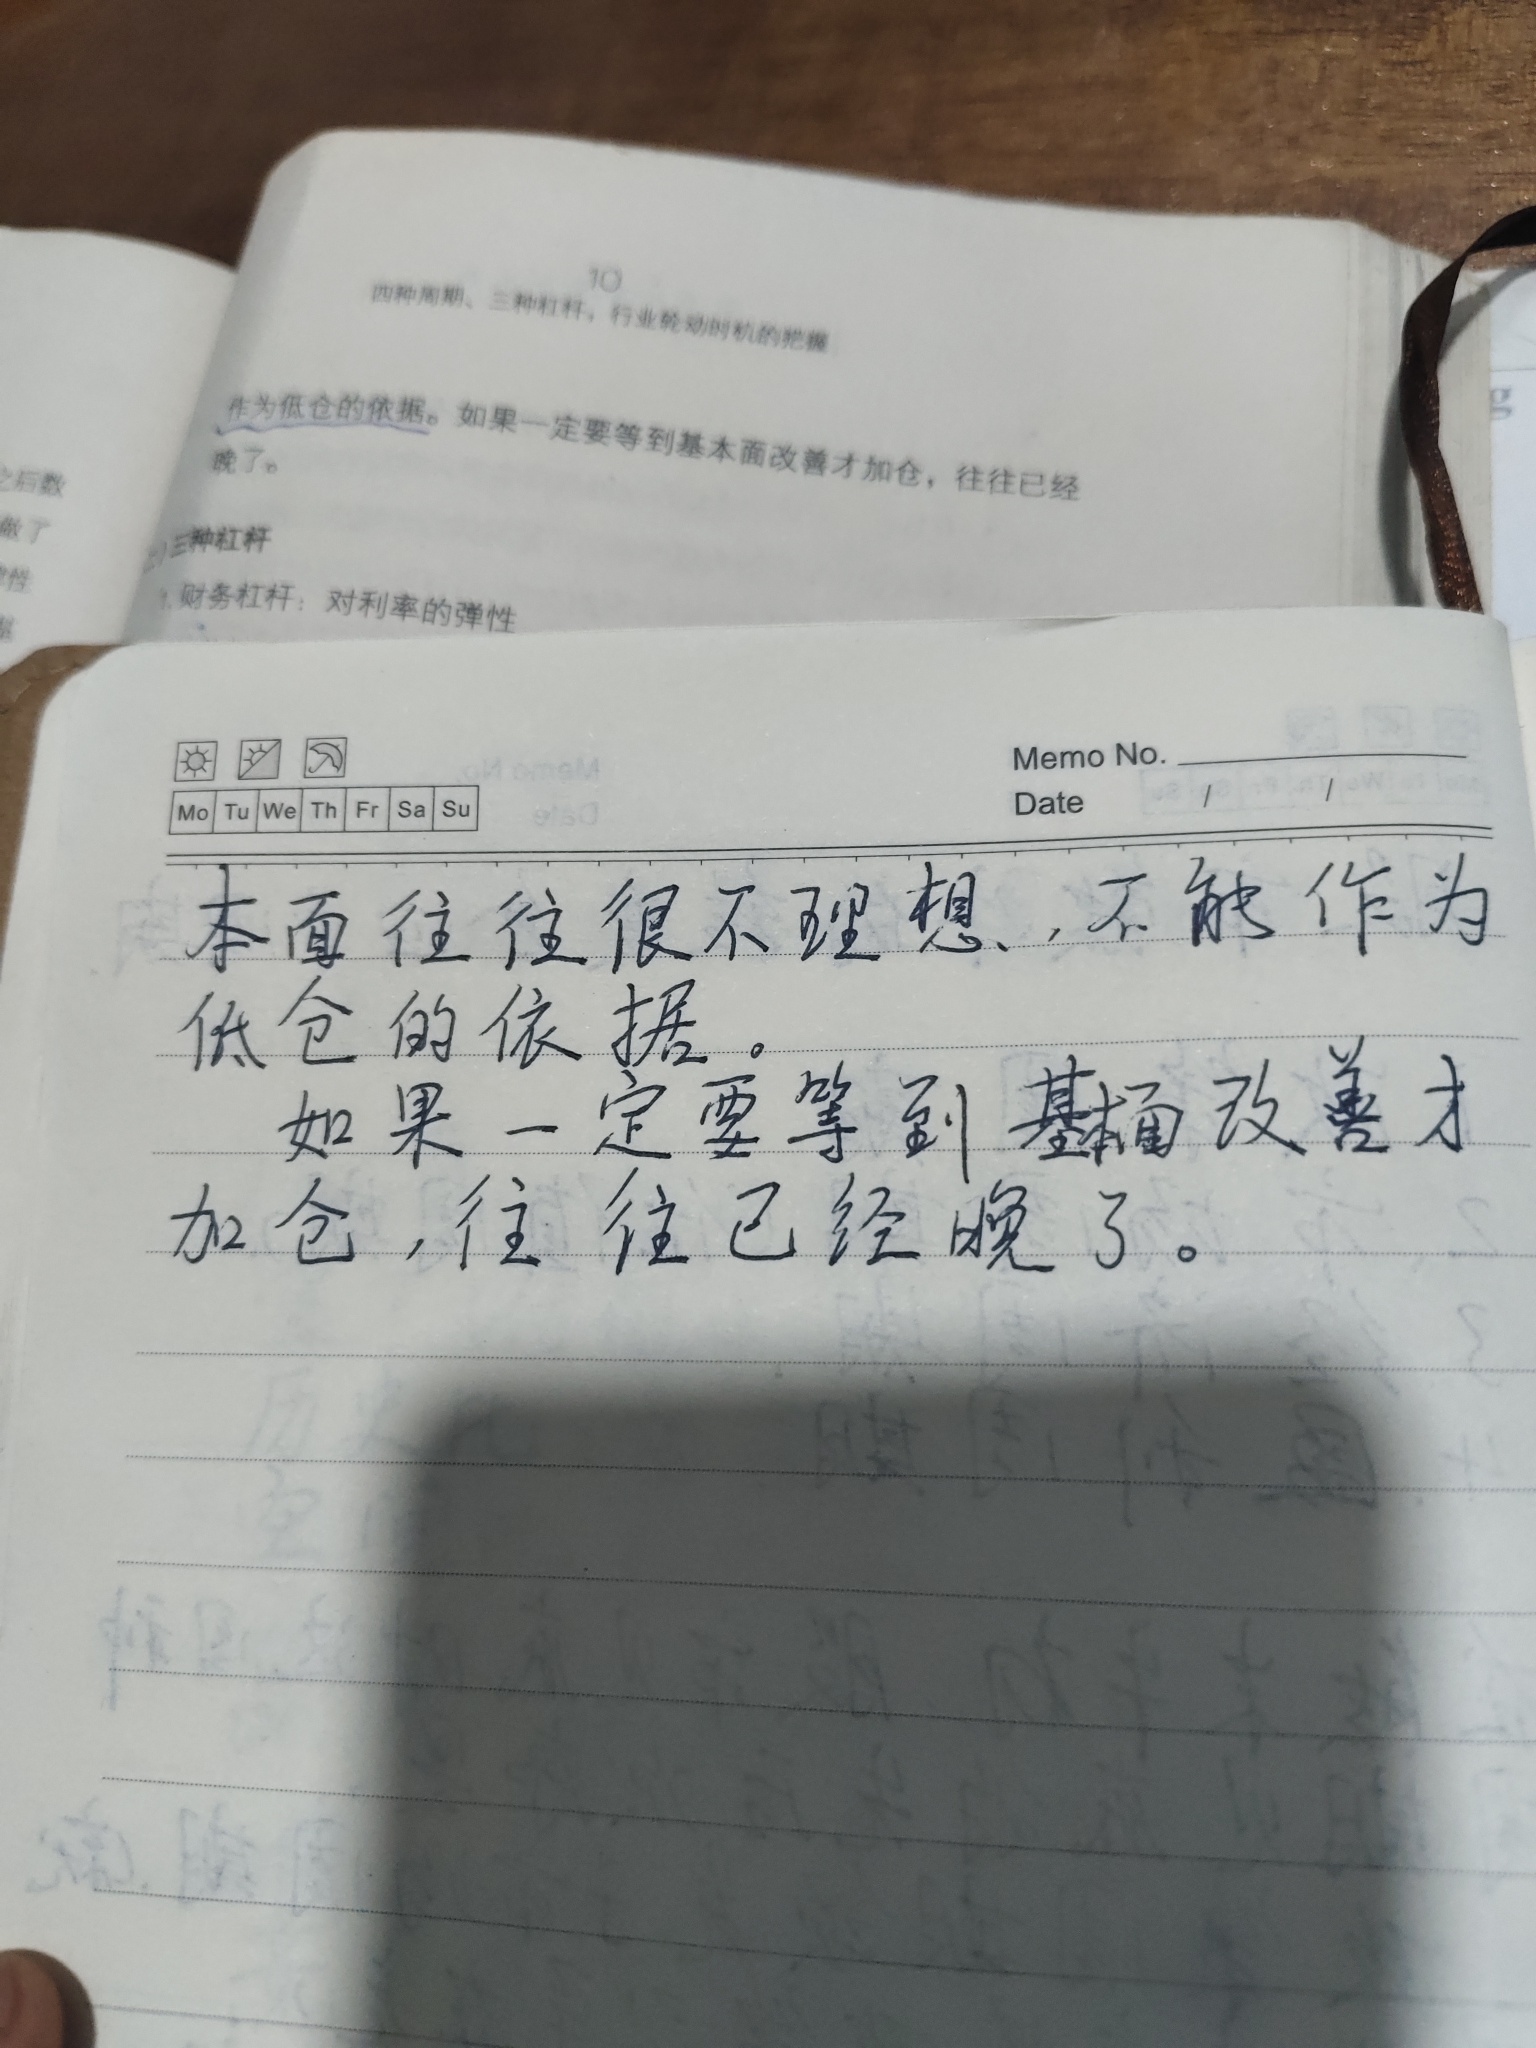 10
四种周期、三种杠杆，行业轮动时机的把握
作为低仓的依据。如果一定要等到基本面改善才加仓，往往已经
晚了。
三种杠杆
1. 财务杠杆：对利率的弹性
之后数
做了
性
Memo No.
Mo Tu We Th Fr Sa Su
Date / /
本面往往很不理想，不能作为
低仓的依据。
如果一定要等到基本面改善才
加仓，往往已经晚了。